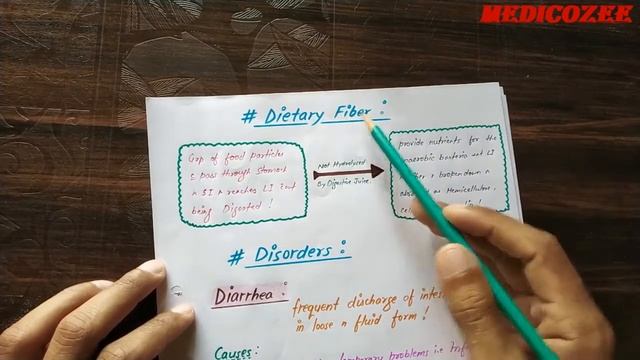 MEDICOZEE
# Dietary Fiber :
Grp of food particles
pass through Stomach
n SI n reaches LI
being Digested !
Not Hydrolysed
By Digestive Juice.
provide nutrients for the
bacteria LI
broken down n
as Hemicellulose,
# Disorders :
Diarrhea :
frequent discharge of
in loose n fluid form !
Causes:
problems i.e